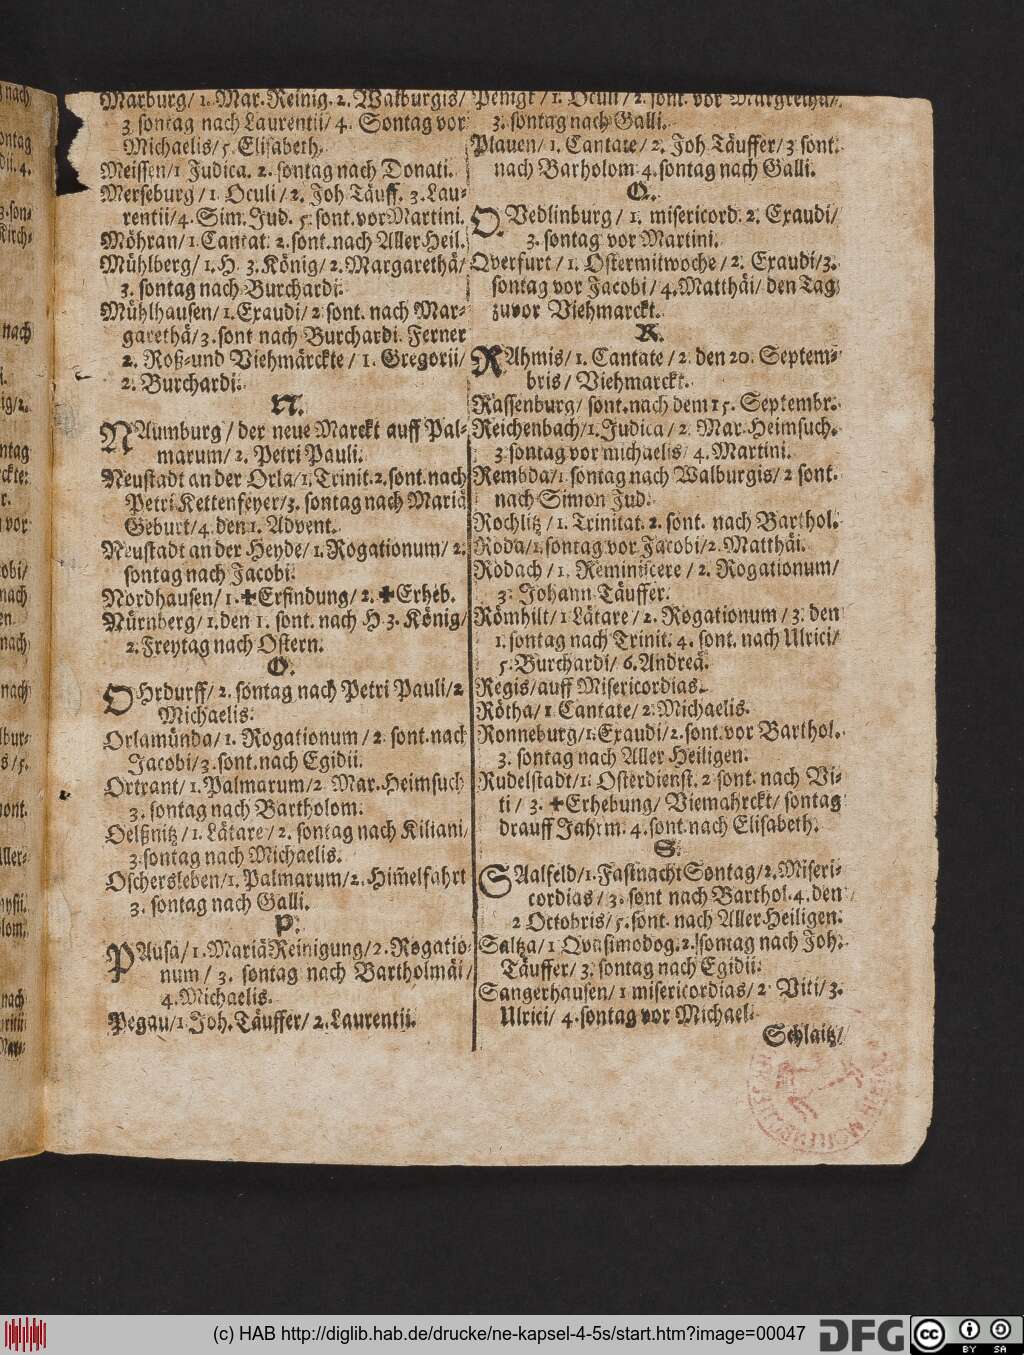 Marburg/ 1. Mar. Reinig. 2. Walburgis/
3 sontag nach Laurentii/ 4. Sontag vor
Michaelis/ 5. Elisabeth.
Meissen/1 Judica. 2. sontag nach Donati.
Merseburg/ 1. Oculi/ 2. Joh Täuff. 3. Lau-
rentii/ 4. Sim. Jud. 5. sont. vor Martini.
Möhran/ 1. Cantat. 2. sont. nach Aller Heil.
Mühlberg/ 1. H. 3. König/ 2. Margarethä/
3. sontag nach Burchardi.
Mühlhausen/ 1. Exaudi/ 2 sont. nach Mar-
garethä/ 3. sont nach Burchardi. Ferner
2. Roß- und Viehmärckte / 1. Gregorii/
2. Burchardi.
N.
NAumburg / der neue Marckt auff Pal-
marum/ 2. Petri Pauli.
Neustadt an der Orla/ 1. Trinit. 2. sont. nach
Petri Kettenfeyer/ 3. sontag nach Mariä
Geburt/ 4. den 1. Advent.
Neustadt an der Heyde/ 1. Rogationum/ 2.
sontag nach Jacobi.
Nordhausen/ 1. ✚ Erfindung/ 2. ✚ Erheb.
Nürnberg/ 1. den 1. sont. nach H 3. König/
2. Freytag nach Ostern.
O.
OHrdurff/ 2. sontag nach Petri Pauli/ 2
Michaelis.
Orlamünda/ 1. Rogationum/ 2 sont. nach
Jacobi/ 3. sont. nach Egidii.
Ortrant/ 1. Palmarum/ 2. Mar. Heimsuch
3. sontag nach Bartholom.
Oelßnitz / 1. Lätare / 2. sontag nach Kiliani/
3. sontag nach Michaelis.
Oschersleben/ 1. Palmarum/ 2. Him̃elfahrt
3. sontag nach Galli.
P.
PAusa/ 1. Mariä Reinigung/ 2. Rogatio-
num / 3. sontag nach Bartholmäi/
4. Michaelis.
Pegau/ 1. Joh. Täuffer/ 2. Laurentii.
Penigk / 1. Oculi / 2. sont. vor Margrethä/
3. sontag nach Galli.
Plauen/ 1. Cantate/ 2. Joh Täuffer/ 3 sont.
nach Barholom. 4. sontag nach Galli.
Q.
QVedlinburg / 1. misericord. 2. Exaudi/
3. sontag vor Martini.
Qverfurt / 1. Ostermitwoche / 2. Exaudi/ 3.
sontag vor Jacobi / 4. Matthäi/ den Tag
zuvor Viehmarckt.
R.
RAhmis/ 1. Cantate / 2. den 20. Septem-
bris / Viehmarckt.
Rassenburg/ sont. nach dem 15. Septembr.
Reichenbach/ 1. Judica/ 2. Mar. Heimsuch.
3 sontag vor michaelis/ 4. Martini.
Rembda/ 1. sontag nach Walburgis/ 2 sont.
nach Simon Jud.
Rochlitz / 1. Trinitat. 2. sont. nach Barthol.
Roda/ 1. sontag vor Jacobi/ 2. Matthäi.
Rodach / 1. Reminiscere / 2. Rogationum/
3. Johann Täuffer.
Römhilt/ 1 Lätare / 2. Rogationum / 3. den
1. sontag nach Trinit. 4. sont. nach Ulrici/
5. Burchardi/ 6. Andreä.
Regis/ auff Misericordias.
Rötha/ 1 Cantate/ 2. Michaelis.
Ronneburg/ 1. Exaudi/ 2. sont. vor Barthol.
3. sontag nach Aller Heiligen.
Rudelstadt/ 1. Osterdienst. 2 sont. nach Vi-
ti / 3. ✚ Erhebung/ Viemahrckt/ sontag
drauff Jahrm. 4. sont. nach Elisabeth.
S.
SAalfeld/ 1. Fastnacht Sontag/ 2. Miseri-
cordias / 3. sont nach Barthol. 4. den
2 Octobris/ 5. sont. nach Aller Heiligen.
Saltza/ 1 Qvasimodog. 2. sontag nach Joh.
Täuffer/ 3. sontag nach Egidii.
Sangerhausen/ 1 misericordias/ 2. Viti/ 3.
Ulrici/ 4. sontag vor Michael.
Schlaitz/
(c) HAB http://diglib.hab.de/drucke/ne-kapsel-4-5s/start.htm?image=00047
DFG
cc
BY SA